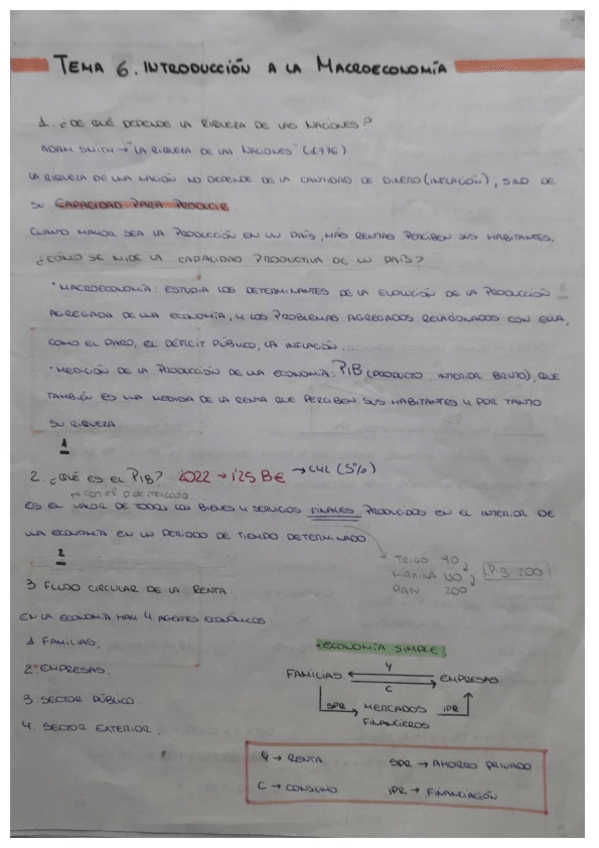 TEMA 6. INTRODUCCIÓN A LA MACROECONOMÍA
1. ¿DE QUÉ DEPENDE LA RIQUEZA DE LAS NACIONES?
ADAM SMITH → "LA RIQUEZA DE LAS NACIONES" (1776)
LA RIQUEZA DE UNA NACIÓN NO DEPENDE DE LA CANTIDAD DE DINERO (INFLACIÓN), SINO DE
SU CAPACIDAD PARA PRODUCIR.
CUANTO MAYOR SEA LA PRODUCCIÓN EN UN PAÍS, MÁS RENTAS PERCIBEN SUS HABITANTES.
¿CÓMO SE MIDE LA CAPACIDAD PRODUCTIVA DE UN PAÍS?
· MACROECONOMÍA: ESTUDIA LOS DETERMINANTES DE LA EVOLUCIÓN DE LA PRODUCCIÓN
AGREGADA DE UNA ECONOMÍA, Y LOS PROBLEMAS AGREGADOS RELACIONADOS CON ELLA,
COMO EL PARO, EL DÉFICIT PÚBLICO, LA INFLACIÓN...
· MEDICIÓN DE LA PRODUCCIÓN DE UNA ECONOMÍA: PIB (PRODUCTO INTERIOR BRUTO), QUE
TAMBIÉN ES UNA MEDIDA DE LA RENTA QUE PERCIBEN SUS HABITANTES Y POR TANTO
SU RIQUEZA.
1
2. ¿QUÉ ES EL PIB? 2022 → 1'25 B€ → CYL (5%)
→ con el p de mercado
ES EL VALOR DE TODOS LOS BIENES Y SERVICIOS FINALES PRODUCIDOS EN EL INTERIOR DE
UNA ECONOMÍA EN UN PERÍODO DE TIEMPO DETERMINADO
2
TRIGO 40
HARINA
PAN 200
PIB 200
3. FLUJO CIRCULAR DE LA RENTA
EN LA ECONOMÍA HAY 4 AGENTES ECONÓMICOS
1. FAMILIAS.
2. EMPRESAS.
3. SECTOR PÚBLICO.
4. SECTOR EXTERIOR.
· ECONOMÍA SIMPLE
Y
FAMILIAS EMPRESAS
C
SPR → MERCADOS IPR
FINANCIEROS
Y → RENTA SPR → AHORRO PRIVADO
C → CONSUMO IPR → FINANCIACIÓN